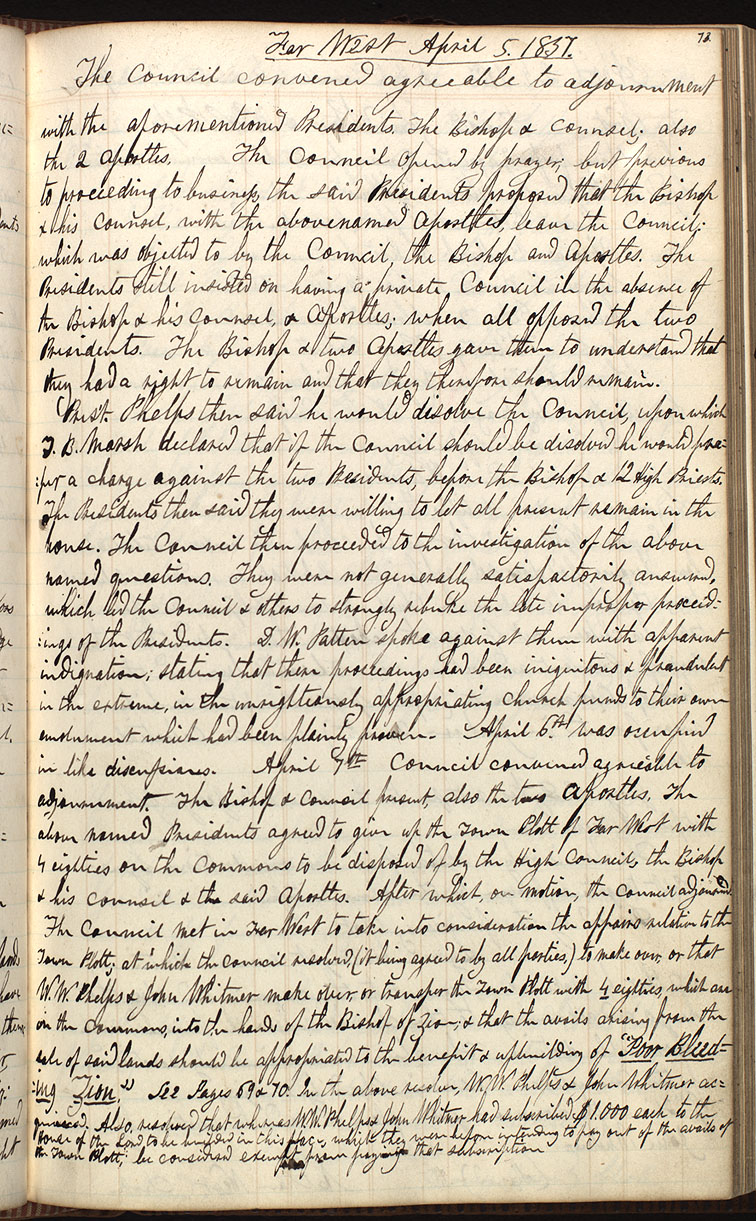 73
Far West April 5. 1837.
The Council convened agreeable to adjournment
with the aforementioned Presidents. The Bishop & Counsel. also
the 2 Apostles. The Council opened by prayer; but previous
to proceeding to business, the said Presidents proposed that the Bishop
& his Counsel, with the abovenamed Apostles, leave the Council;
which was objected to by the Council, the Bishop and Apostles. The
Presidents still insisted on having a private Council in the absence of
the Bishop & his Counsel, & Apostles; when all opposed the two
Presidents. The Bishop & two Apostles gave them to understand that
they had a right to remain and that they therefore should remain.
Prest. Phelps then said he would disolve the Council, upon which
T. B. Marsh declared that if the Council should be disolved he would pre=
:fer a charge against the two Presidents, before the Bishop & 12 High Priests.
The Presidents then said they were willing to let all present remain in the
house. The Council then proceeded to the investigation of the above
named questions. They were not generally satisfactorily answered,
which led the Council & others to strongly rebuke the late improper proceed=
:ings of the Presidents. D. W. Patten spoke against them with apparent
indignation; stating that these proceedings had been iniquitous & fraudulent
in the extreme, in the unrighteously appropriating Church funds to their own
emolument which had been plainly proven. April 6th. was occupied
in like discussions. April 7th Council convened agreeable to
adjournment. The Bishop & Council present, also the two Apostles. The
above named Presidents agreed to give up the Town Plott of Far West with
4 eighties on the Commons to be disposed of by the High Council, the Bishop
& his counsel & the said Apostles. After which, on motion, the Council adjourned
The Council met in Far West to take into consideration the affairs relative to the
Town Plott; at which the council resolved, (it being agreed to by all parties,) to make over or that
W. W. Phelps & John Whitmer make over or transfer the Town Plott with 4 eighties, which are
on the Commons, into the hands of the Bishop of Zion; & that the avails arising from the
sale of said lands should be appropriated to the benefit & upbuilding of "Poor Bleed=
:ing Zion." See Pages 69 & 70. In the above resolve, W. W. Phelps & John Whitmer ac=
quiesced. Also, resolved that whereas W. W. Phelps & John Whitmer had subscribed $1.000 each to the
House of the Lord to be builded in this place, which they were before intending to pay out of the avails of
the Town Plott; be considered exempt from paying that subscription